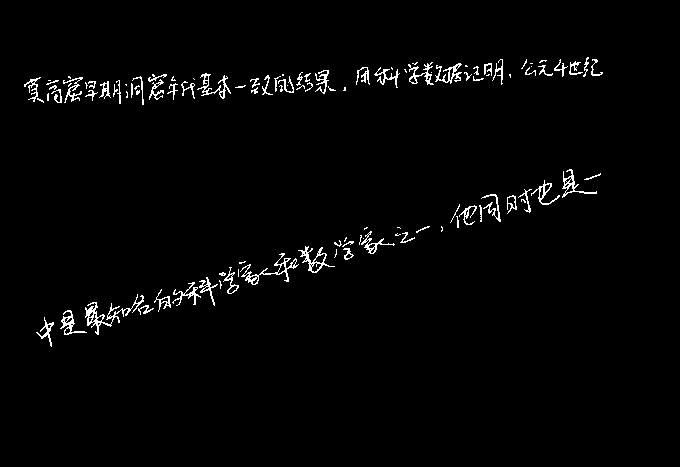 莫高窟早期洞窟年代基本一致的结果，用科学数据证明，公元4世纪
中是最知名的科学家和数学家之一，他同时也是一